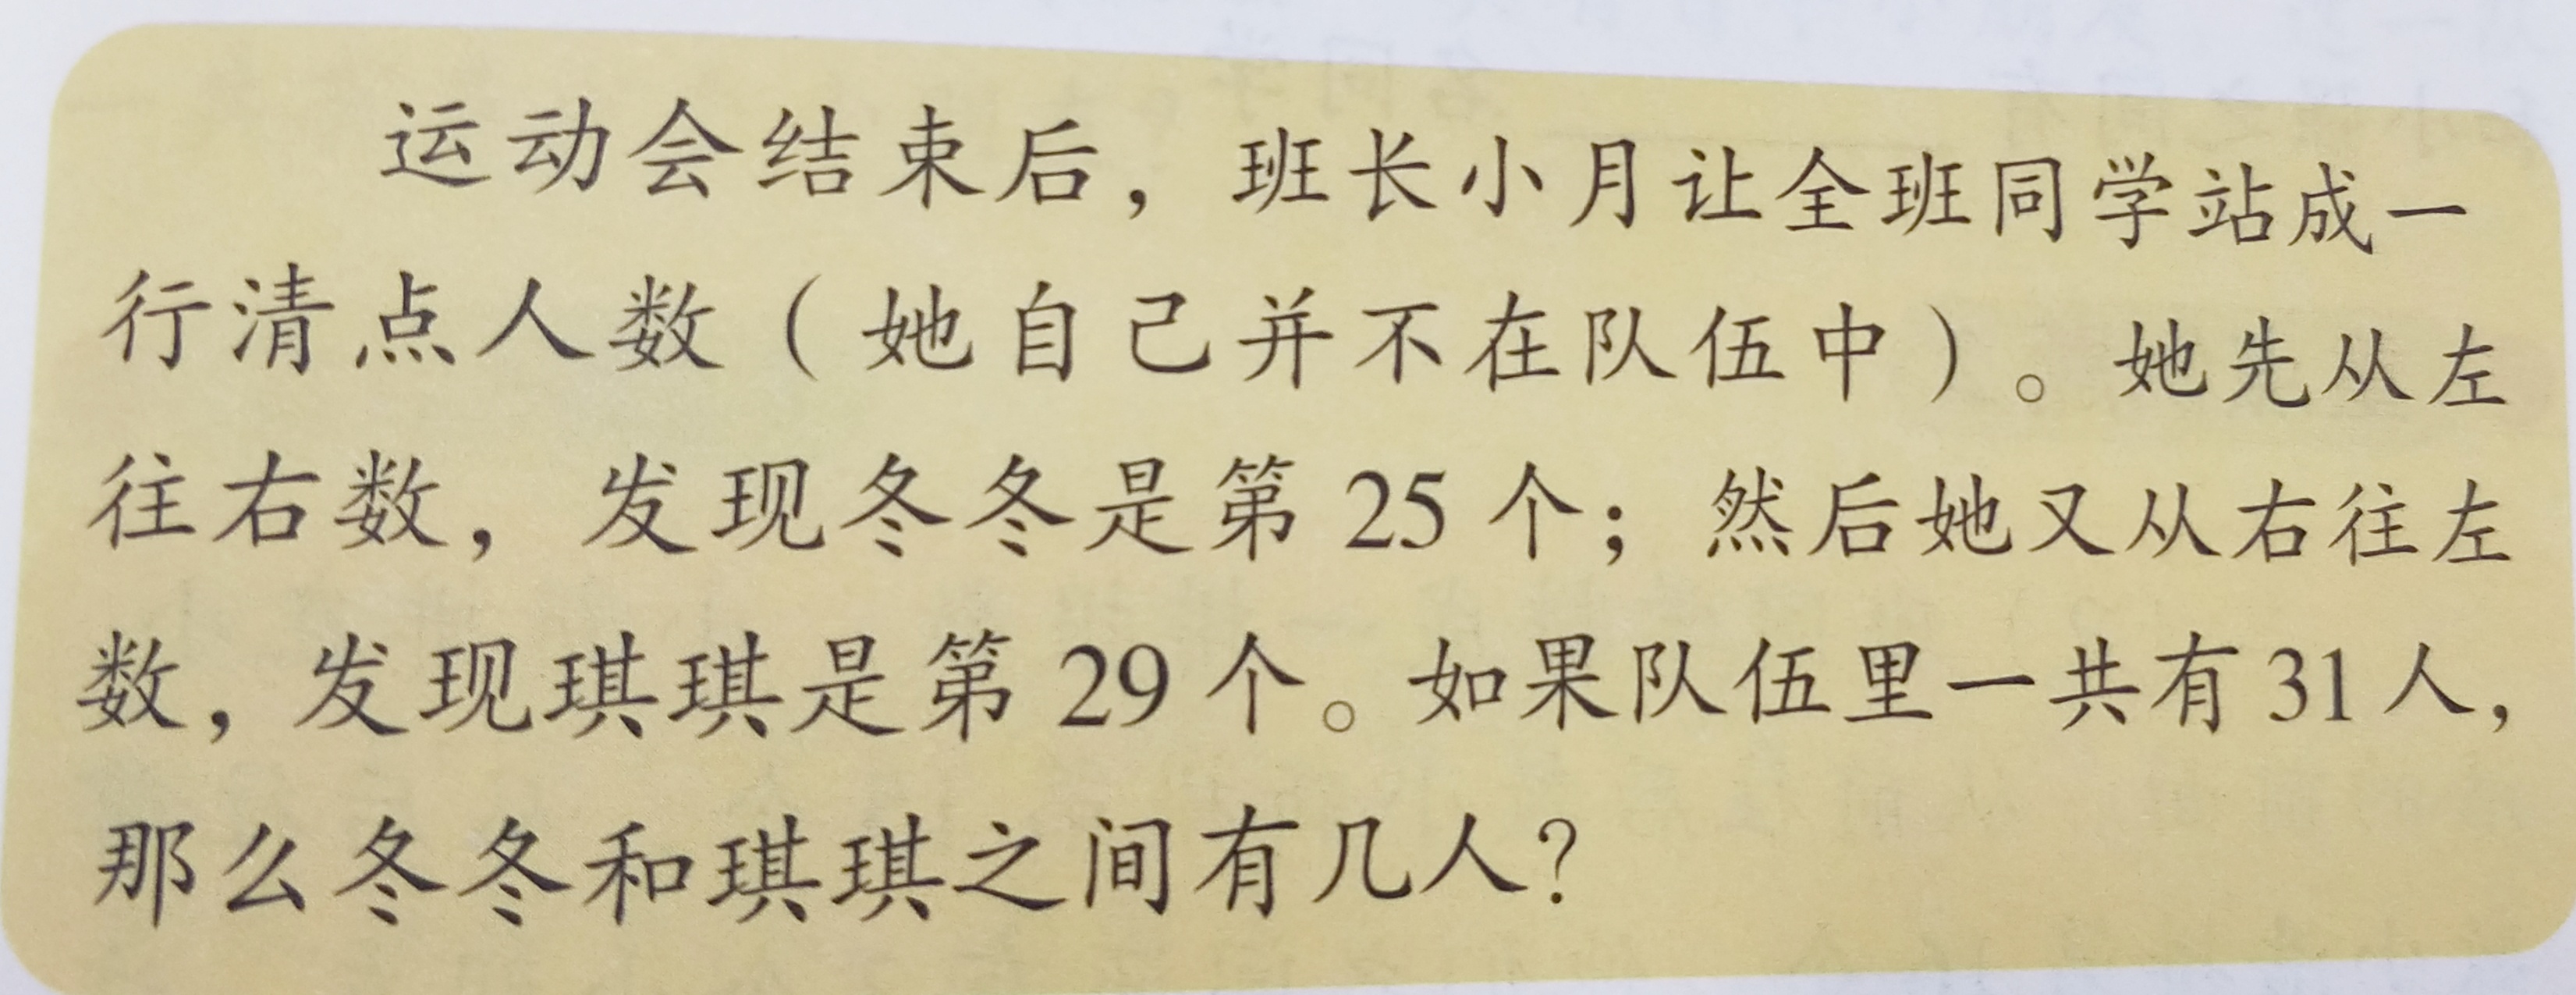 运动会结束后，班长小月让全班同学站成一
行清点人数（她自己并不在队伍中）。她先从左
往右数，发现冬冬是第 25 个；然后她又从右往左
数，发现琪琪是第 29 个。如果队伍里一共有 31 人，
那么冬冬和琪琪之间有几人？